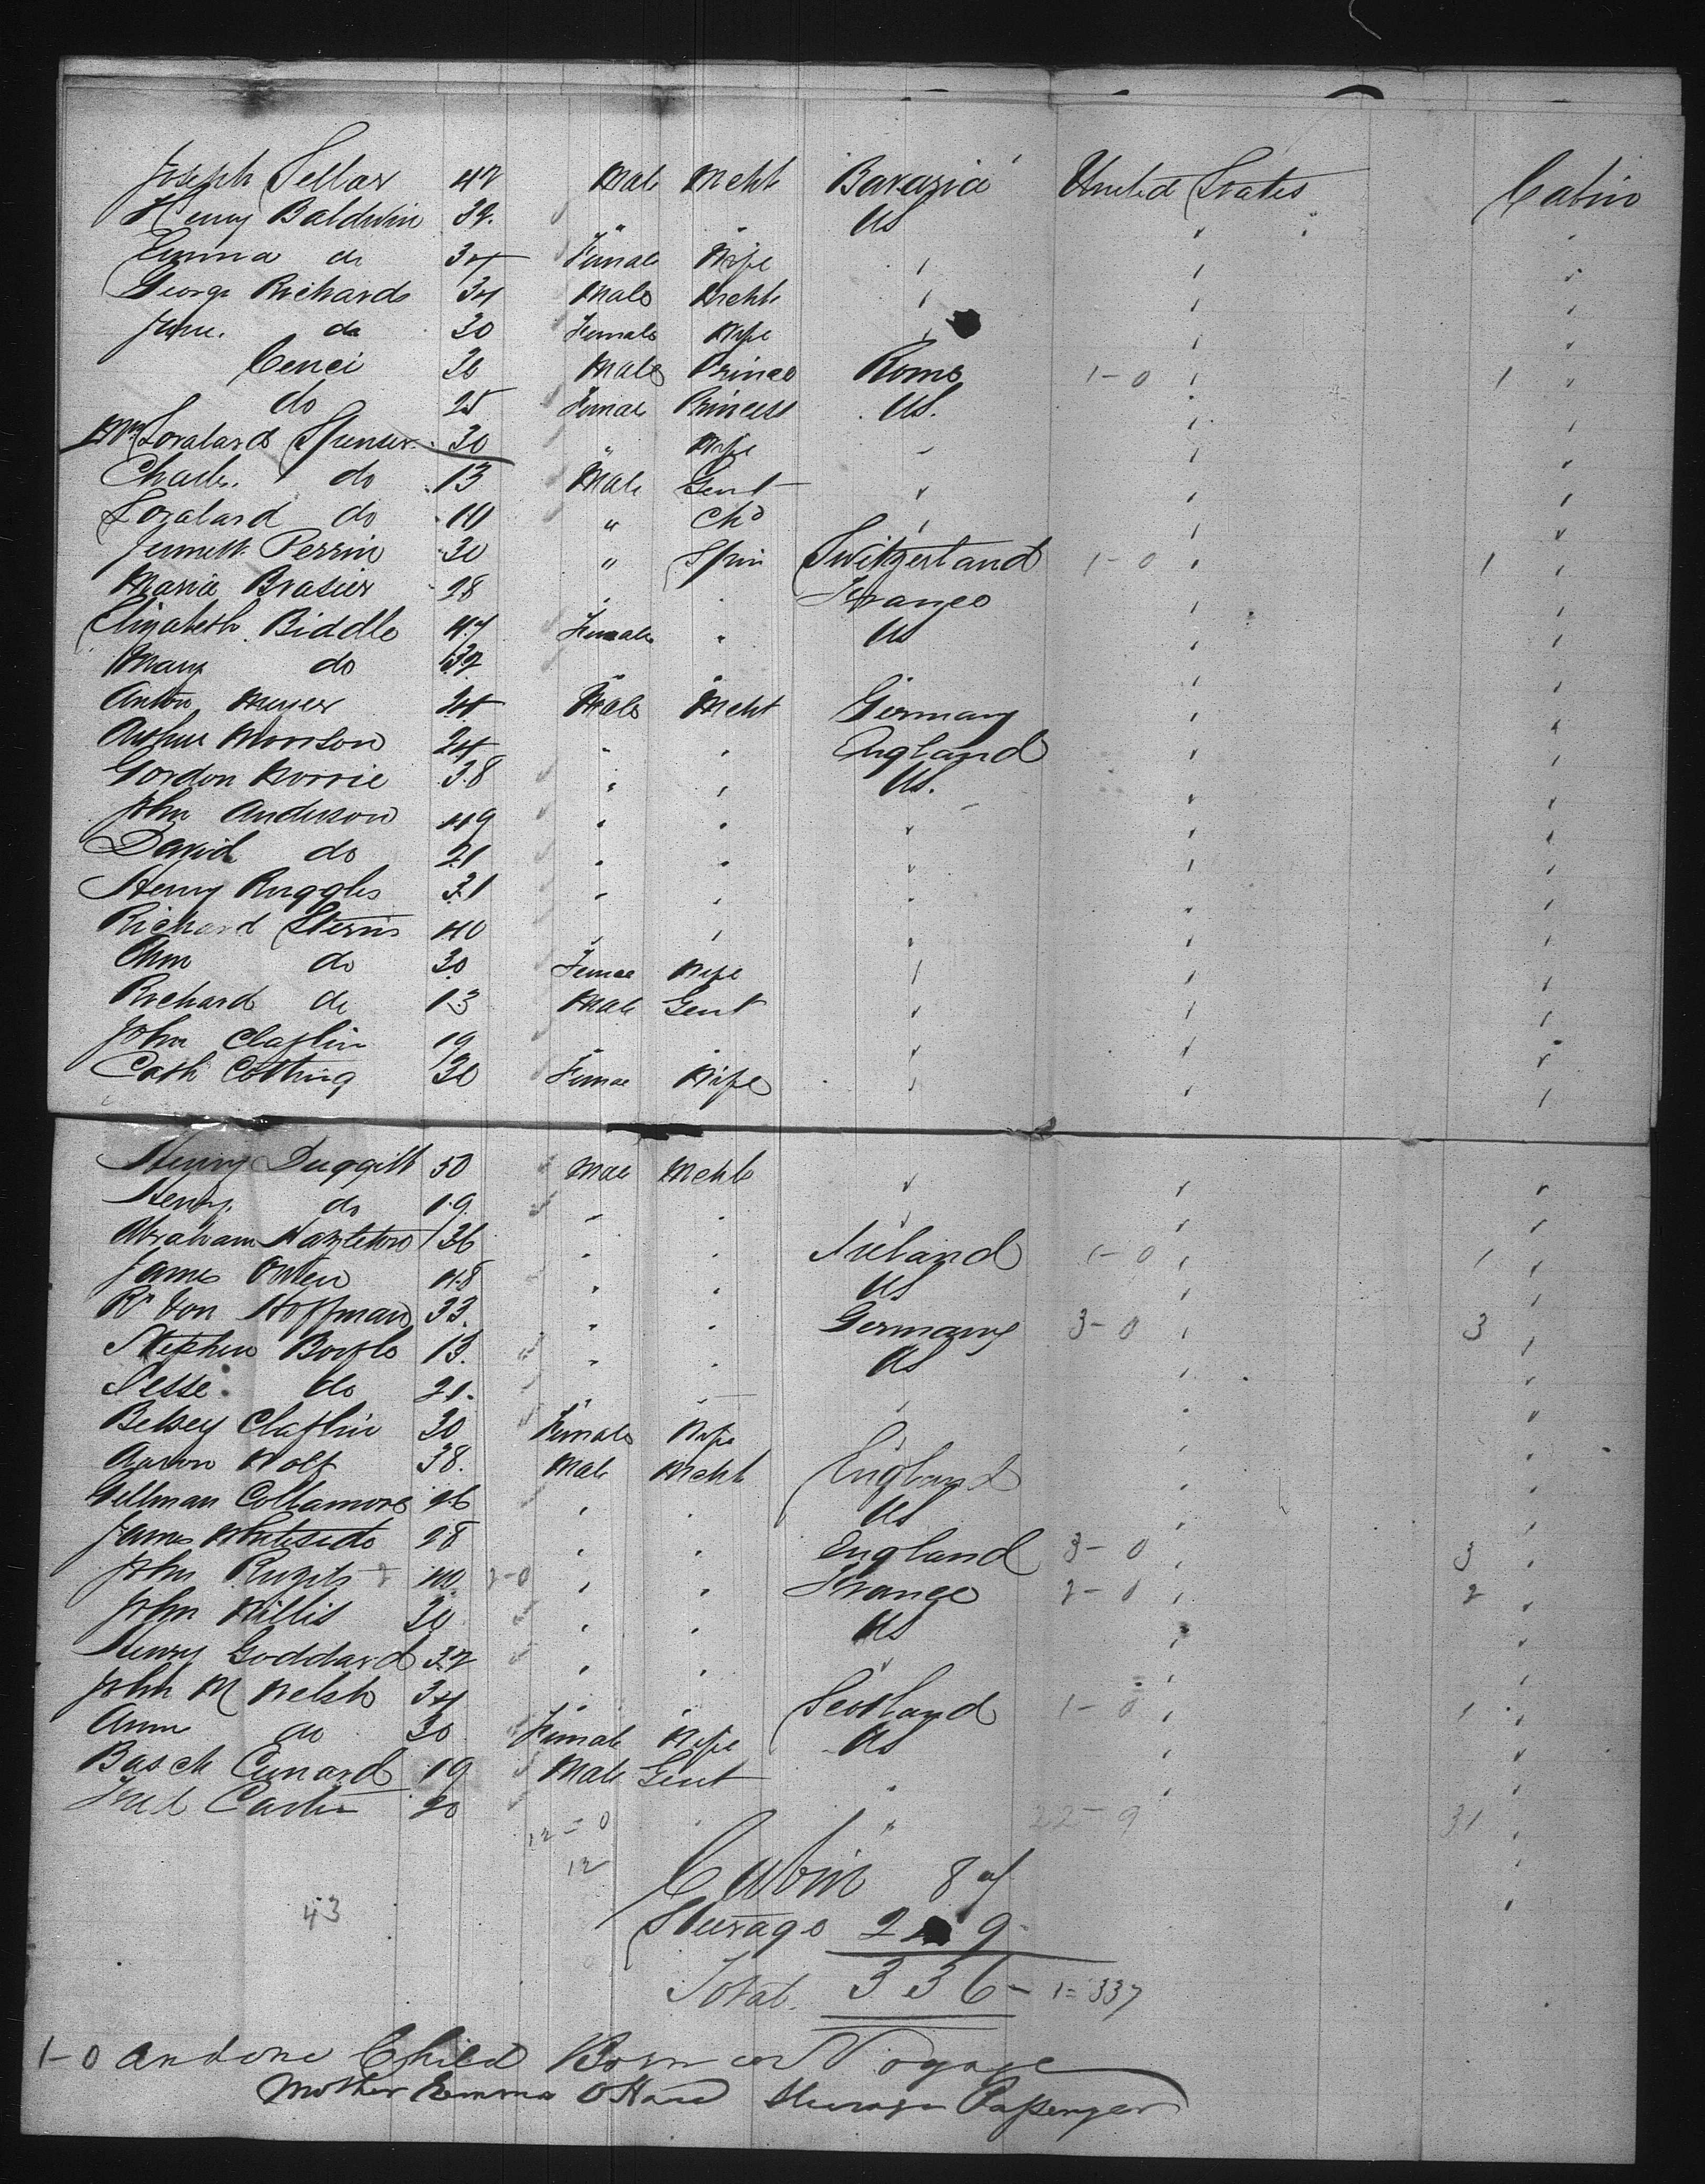 Joseph Sellar 42 Male Mcht Bavaria United States Cabin
Henry Baldwin 32. " " US
Emma do 34 Female Wife
George Richards 34 Male Mcht
Jane. do 30 Female Wife
Cenci 26 Male Prince Rome 1-0 1
do 25 Female Princess US.
Mrs Loralard Spenser 30 " Wife
Charles. do 13 Male Gent
Loralard do 10 " Chd
Jennett Perrin 30 " Spin Switzerland 1-0 1
Maria Brasier 28 France
Elizabeth Biddle 47 Female " US
Mary do 32
Anton 24 Male Mcht Germany
Arthur Monson 24 England
Gordon Norrie 38 US.
John Anderson 49
David do 21
Henry Ruggles 31
Richard Sterns 40
Ann do 30 Female Wife
Richard do 13 Male Gent
John Claflin 19
Cath Cotting 30 Female Wife
Henry Duggitt 50 Male Mcht
Henry. do 19.
Abraham Hazleton 36 Ireland 1-0 1
James Owen 48 US
Rd Von Hoffman 33. Germany 3-0 3
Stephen 13. US
Jesse do 21.
Betsey Claflin 30 Female Wife
Aaron Wolf 38. Male Mcht England
Gillman Collamore 26 US
James Whiteside 28 England 3-0 3
John 40 2-0 France 2-0 2
John Willis 30 US
Henry Goddard 32
John M Welsh 34 Scotland 1-0 1
Ann do 30 Female Wife US
Basch Cunard 19 Male Gent
Fred Carter 20
12-0 22-9 31
12 Cabin 87
43 Steerage 2 9
Total. 336 - 1=337
1-0 And one Child Born on Voyage
Mother Emma OHare Steerage Passenger